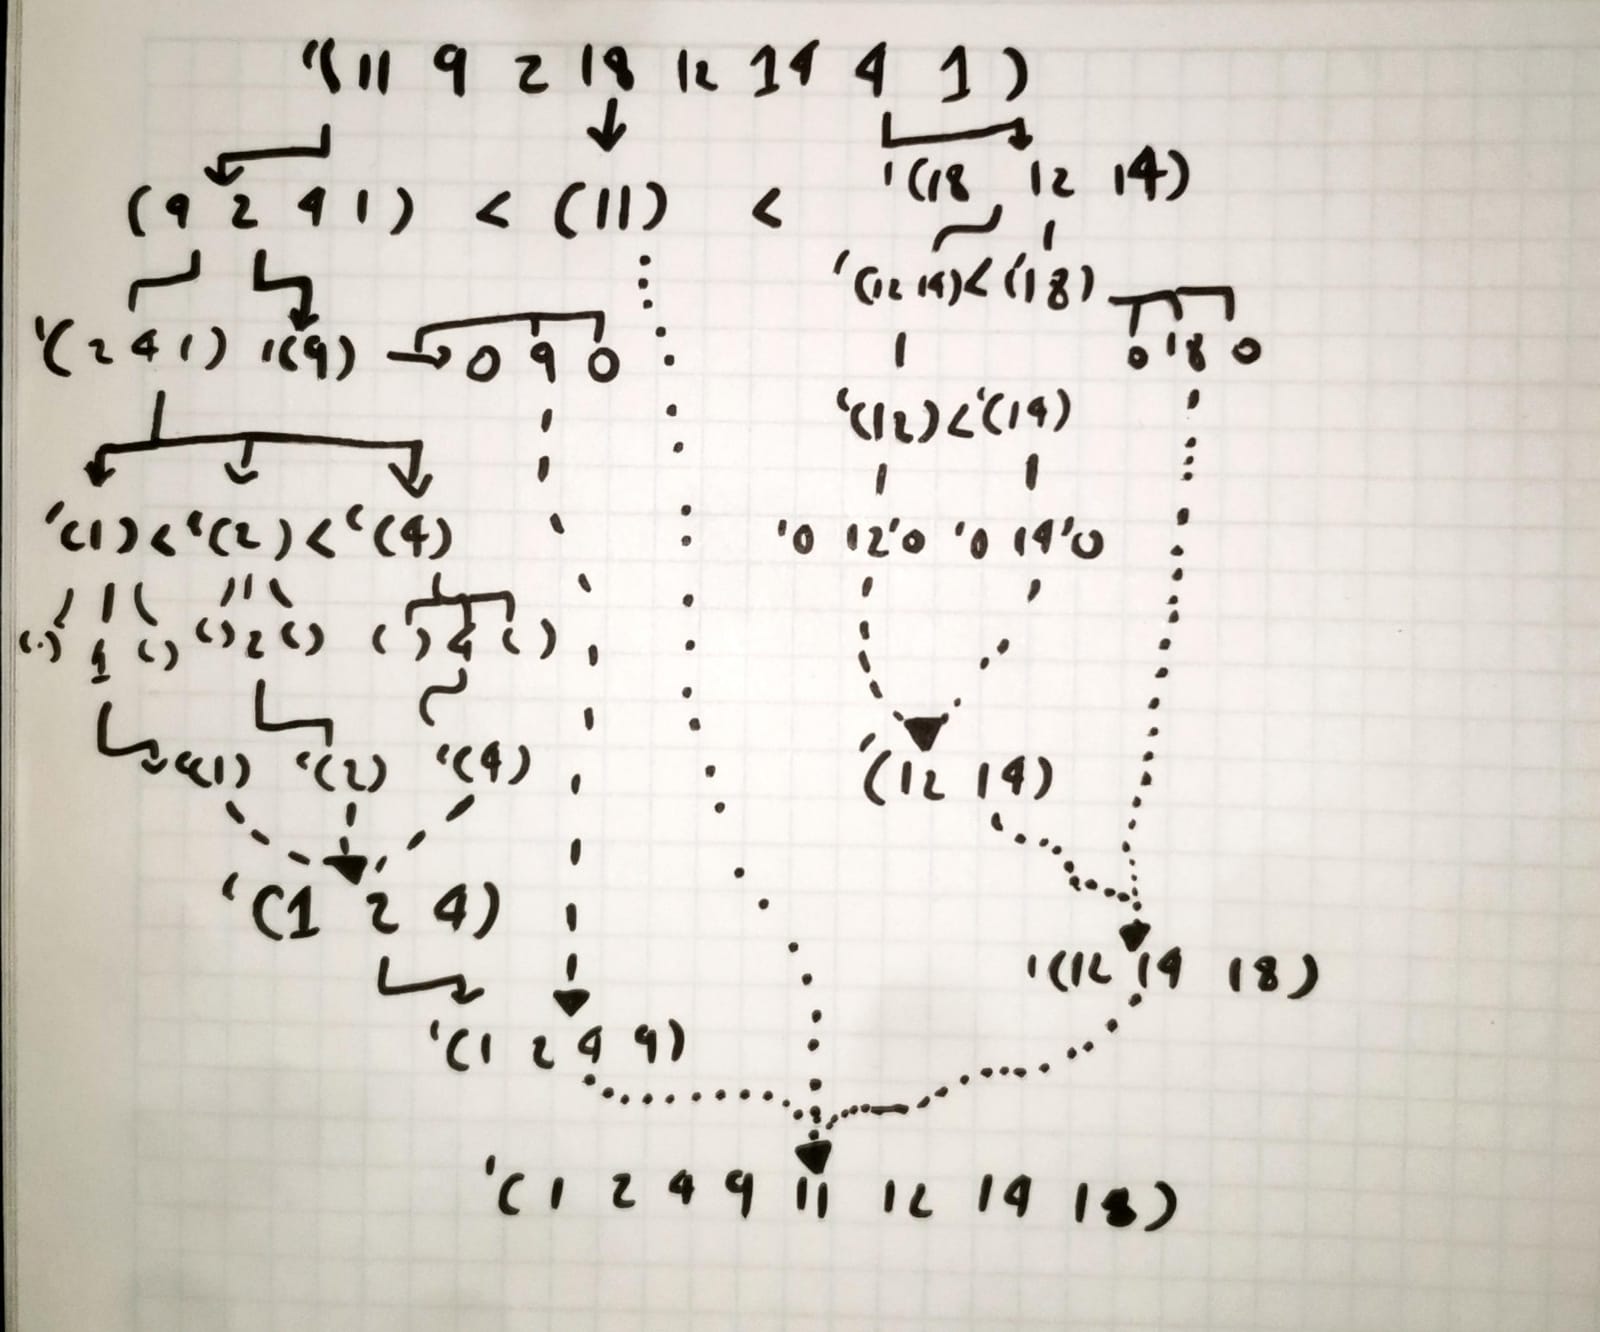 '(11 9 2 18 12 14 4 1)
(9 2 4 1) < (11) < '(18 12 14)
'(12 14)<(18)
'(2 4 1) '(9) 0 9 0 0 18 0
'(12)<'(14)
'(1)<'(2)<'(4) '0 12'0 '0 14'0
() 1 () () 2 () () 4 ()
'(1) '(2) '(4) '(12 14)
'(1 2 4)
'(12 14 18)
'(1 2 4 9)
'(1 2 4 9 11 12 14 18)